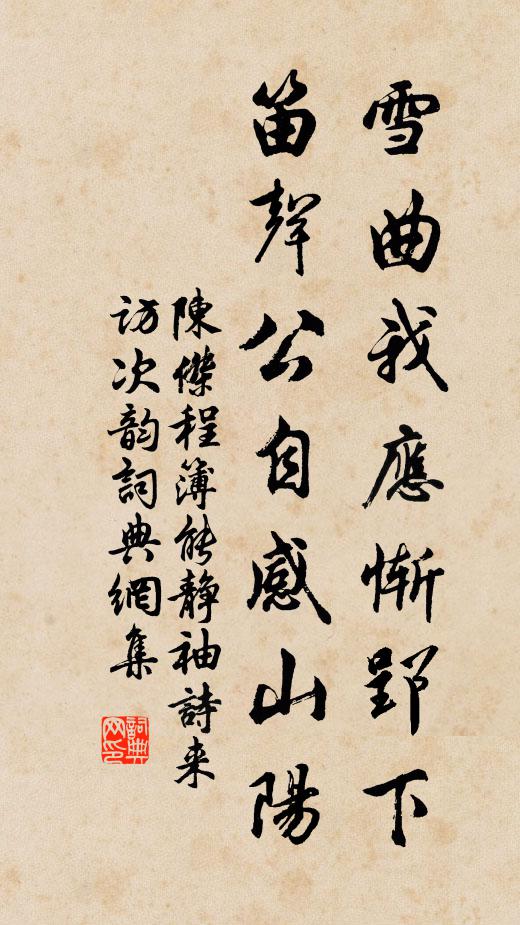 雪曲我應慚郢下
笛聲公自感山陽
陳傑程簿能靜袖詩来
訪次韵詞典網集
詞典网印